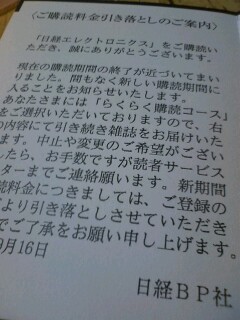 〈ご購読料金引き落としのご案内〉
「日経エレクトロニクス」をご購読い
ただき、誠にありがとうございます。
現在の購読期間の終了が近づいてまい
りました。間もなく新しい購読期間に
入ることをお知らせいたします。
あなたさまには「らくらく購読コース」
をご選択いただいておりますので、右
の内容にて引き続き雑誌をお届けいた
ます。中止や変更のご希望がござい
したら、お手数ですが読者サービス
ターまでご連絡願います。新期間
読料金につきましては、ご登録の
より引き落としさせていただき
でご了承をお願い申し上げます。
9月16日
日経BP社